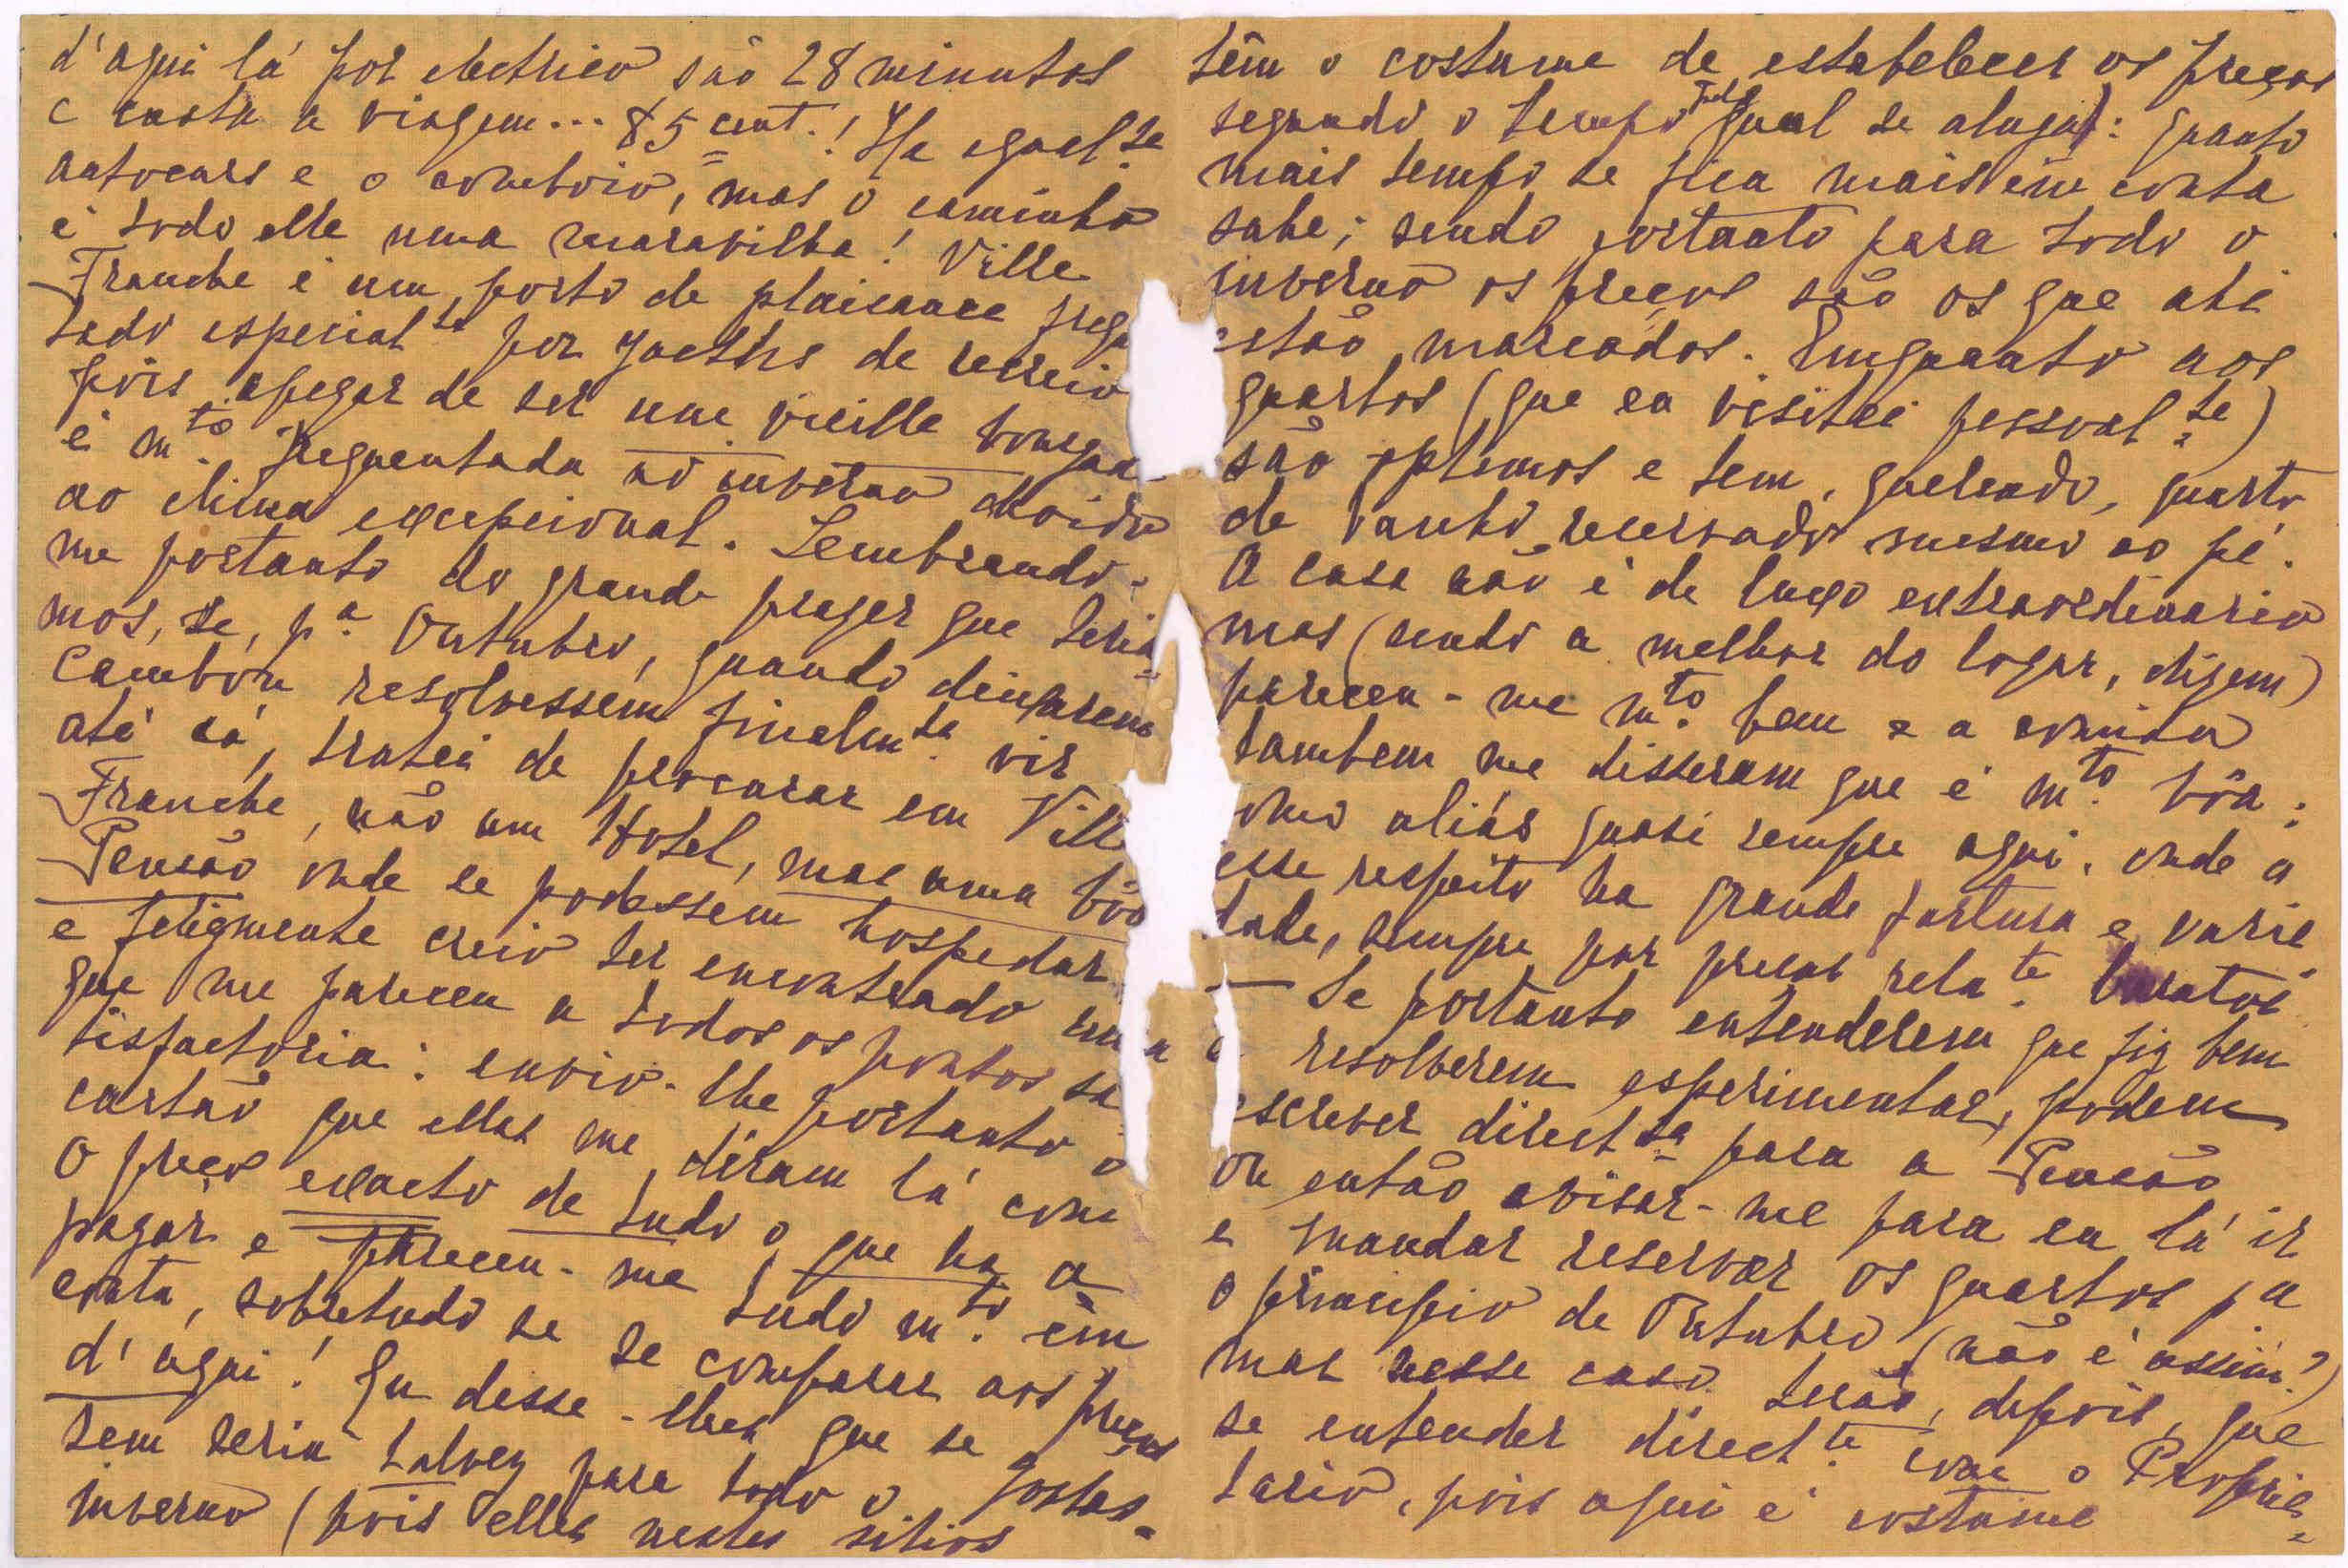 d'aqui lá por electrico são 28 minutos
e custa a viagem... 85 cent.! Ha egualte
autocars e o comboio, mas o caminho
é todo elle uma maravilha! Ville
Franche é um porto de plaisance frequen
tado especialte por yachts de recreio
pois apezar de ser une vieille bourgade
é mto frequentada no inverno devido
ao clima excepcional. Lembrando-
me portanto do grande prazer que teria-
mos, se, pa Outubro, quando
Cambon resolvessem finalmte vir
até cá, tratei de procurar em Ville
Franche, não um Hotel, mas uma bôa
Pensão onde se podessem hospedar
e felizmente creio ter encontrado uma
que me pareceu a todos os pontos sa
tisfactoria: envio-lhe portanto o
cartão que elles me deram lá com
o preço exacto de tudo o que ha a
pagar e pareceu-me tudo mto em
conta, sobretudo se se comparar aos preços
d'aqui! Eu disse-lhes que se gostas-
sem seria talvez para todo o
inverno (pois elles nestes sitios
têm o costume de estabelecer os preços
segundo o tempo pelo qual se aluga): quanto
mais tempo se fica mais em conta
sahe; sendo portanto para todo o
inverno os preços são os que ahi
estão marcados. Emquanto aos
quartos (que eu visitei pessoalte)
são optimos e tem, querendo, quarto
de banho reservado mesmo ao pé.
A casa não é de luxo extraordinario
mas (sendo a melhor do logar, dizem)
pareceu-me mto bem e a comida
tambem me disseram que é mto bôa;
como aliás quasi sempre aqui, onde a
esse respeito ha grande fartura e varie
dade, sempre por preços relate baratos
— Se portanto entenderem que fiz bem
e resolverem esperimentar, podem
escrever directte para a Pensão
ou então avisar-me para eu lá ir
e mandar reservar os quartos pa
o principio de Outubro (não é assim?)
mas nesse caso terão, depois, que
se entender directte com o Proprie-
tario, pois aqui é costume